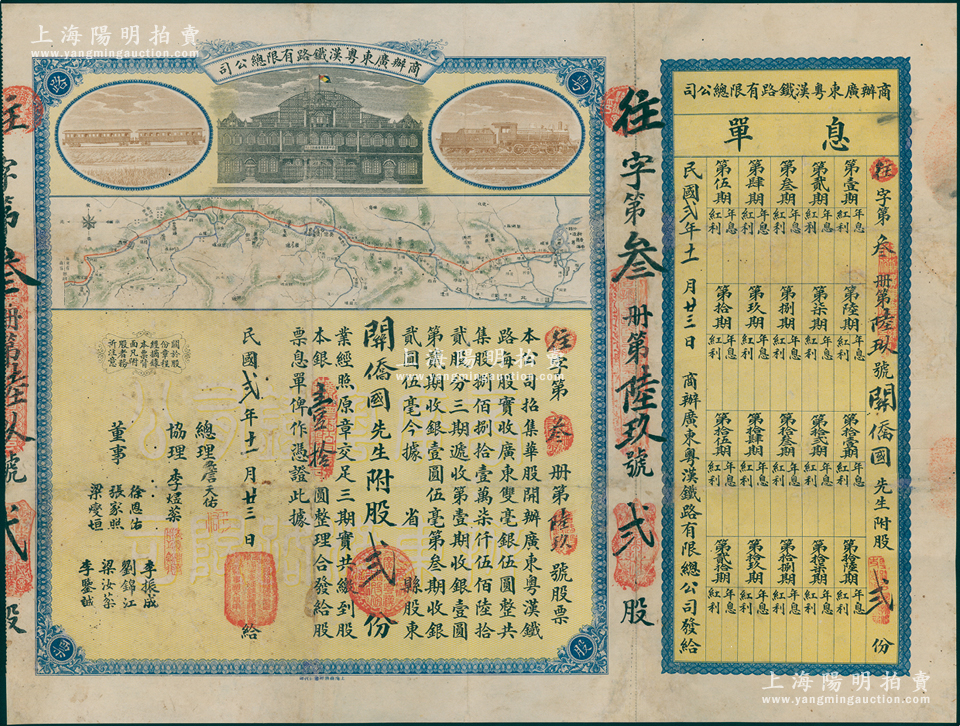 上海陽明拍賣
www.yangmingauction.com
商辦廣東粵漢鐵路有限總公司
粵
路
股
票
往字第叁册第陸玖號股票
本公司招集華股開辦廣東粵漢鐵
路每股實收廣東雙毫銀伍圓整共
集股捌佰捌拾壹萬柒仟伍佰陸拾
貳股分三期遞收第壹期收銀壹圓
第貳期收銀壹圓伍毫第叁期收銀
貳圓伍毫今據 省 縣股東
開僑國先生附股貳份
業經照原章交足三期實共繳到股
本銀壹拾圓整理合發給股
票息單俾作憑證此據
民國貳年十一月廿三日 給
總理 詹天佑
協理 李煜棻
董事
徐恩佑
張家照
梁燮垣
李振成
劉錦江
梁汝棻
李鑒誠
關於股
份章程
經摘錄
本票背
面凡附
股者務
祈注意
往字第叁册第陸玖號 貳股
往字第叁册第陸玖號 貳股
商辦廣東粵漢鐵路有限總公司
息單
往字第叁册第陸玖號開僑國先生附股貳份
第壹期 年息 紅利
第貳期 年息 紅利
第叁期 年息 紅利
第肆期 年息 紅利
第伍期 年息 紅利
第陸期 年息 紅利
第柒期 年息 紅利
第捌期 年息 紅利
第玖期 年息 紅利
第拾期 年息 紅利
第拾壹期 年息 紅利
第拾貳期 年息 紅利
第拾叁期 年息 紅利
第拾肆期 年息 紅利
第拾伍期 年息 紅利
第拾陸期 年息 紅利
第拾柒期 年息 紅利
第拾捌期 年息 紅利
第拾玖期 年息 紅利
第貳拾期 年息 紅利
民國貳年十一月廿三日 商辦廣東粵漢鐵路有限總公司發給
上海陽明拍賣
www.yangmingauction.com